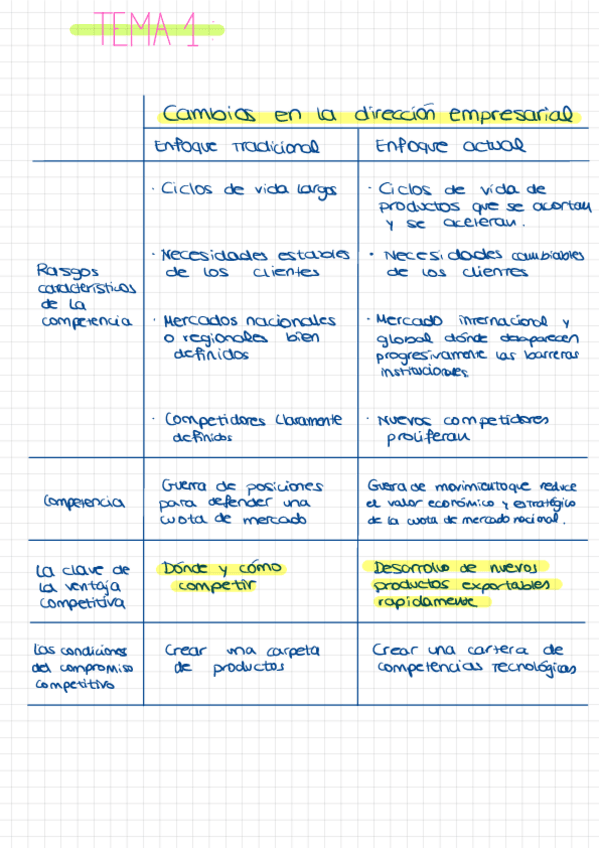 TEMA 1:
Cambios en la dirección empresarial
Enfoque Tradicional
Enfoque actual
Rasgos
característicos
de la
competencia
· Ciclos de vida largos
· Necesidades estables
de los clientes
· Mercados nacionales
o regionales bien
definidos
· Competidores claramente
definidos
· Ciclos de vida de
productos que se acortan
y se aceleran.
· Necesidades cambiables
de los clientes
· Mercado internacional y
global dónde desaparecen
progresivamente las barreras
institucionales.
· Nuevos competidores
proliferan
Competencia
Guerra de posiciones
para defender una
cuota de mercado
Guerra de movimiento que reduce
el valor económico y estratégico
de la cuota de mercado nacional.
La clave de
la ventaja
competitiva
Dónde y cómo
competir
Desarrollo de nuevos
productos exportables
rapidamente
Las condiciones
del compromiso
competitivo
Crear una carpeta
de productos
Crear una cartera de
competencias tecnológicas